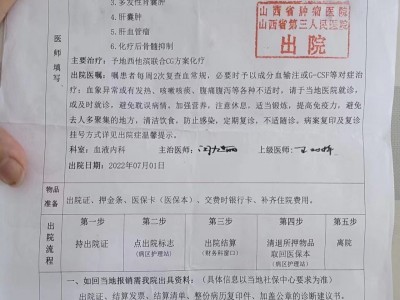 3. 多发性肾囊肿
4. 肝囊肿
5. 肝血管瘤
6. 化疗后骨髓抑制
山西省肿瘤医院
山西省第三人民医院
出院
医师填写
主要治疗：予地西他滨联合CG方案化疗
出院医嘱：嘱患者每周2次复查血常规，必要时予以成分血输注或G-CSF等对症治
疗；血象异常或有发热、咳嗽咳痰、腹痛腹泻等各种不适时，请于当地医院就诊，
或及时就诊，避免耽误病情，加强营养，注意休息，适当锻炼，提高免疫力，避免
去人多聚集的地方，清洁饮食，防止感染，定期复诊，不适随诊。病案复印及复诊
挂号方式详见出院症温馨提示。
科室：血液内科 主治医师： 上级医师：
出院日期：2022年07月01日
物品准备
出院证、押金条、医保卡（医保本）、交费时银行卡、补齐住院费用。
出院流程
第一步 第二步 第三步 第四步 第五步
持出院证 点出院标志（病区护理站） 出院结算（财务科窗口） 清退所押物品取回医保本（病区护理站） 离院
一、如回当地报销需我院出具资料：（具体信息以当地社保中心要求为准）
出院证、结算发票、结算清单、整份病历复印件、加盖公章的诊断建议书。